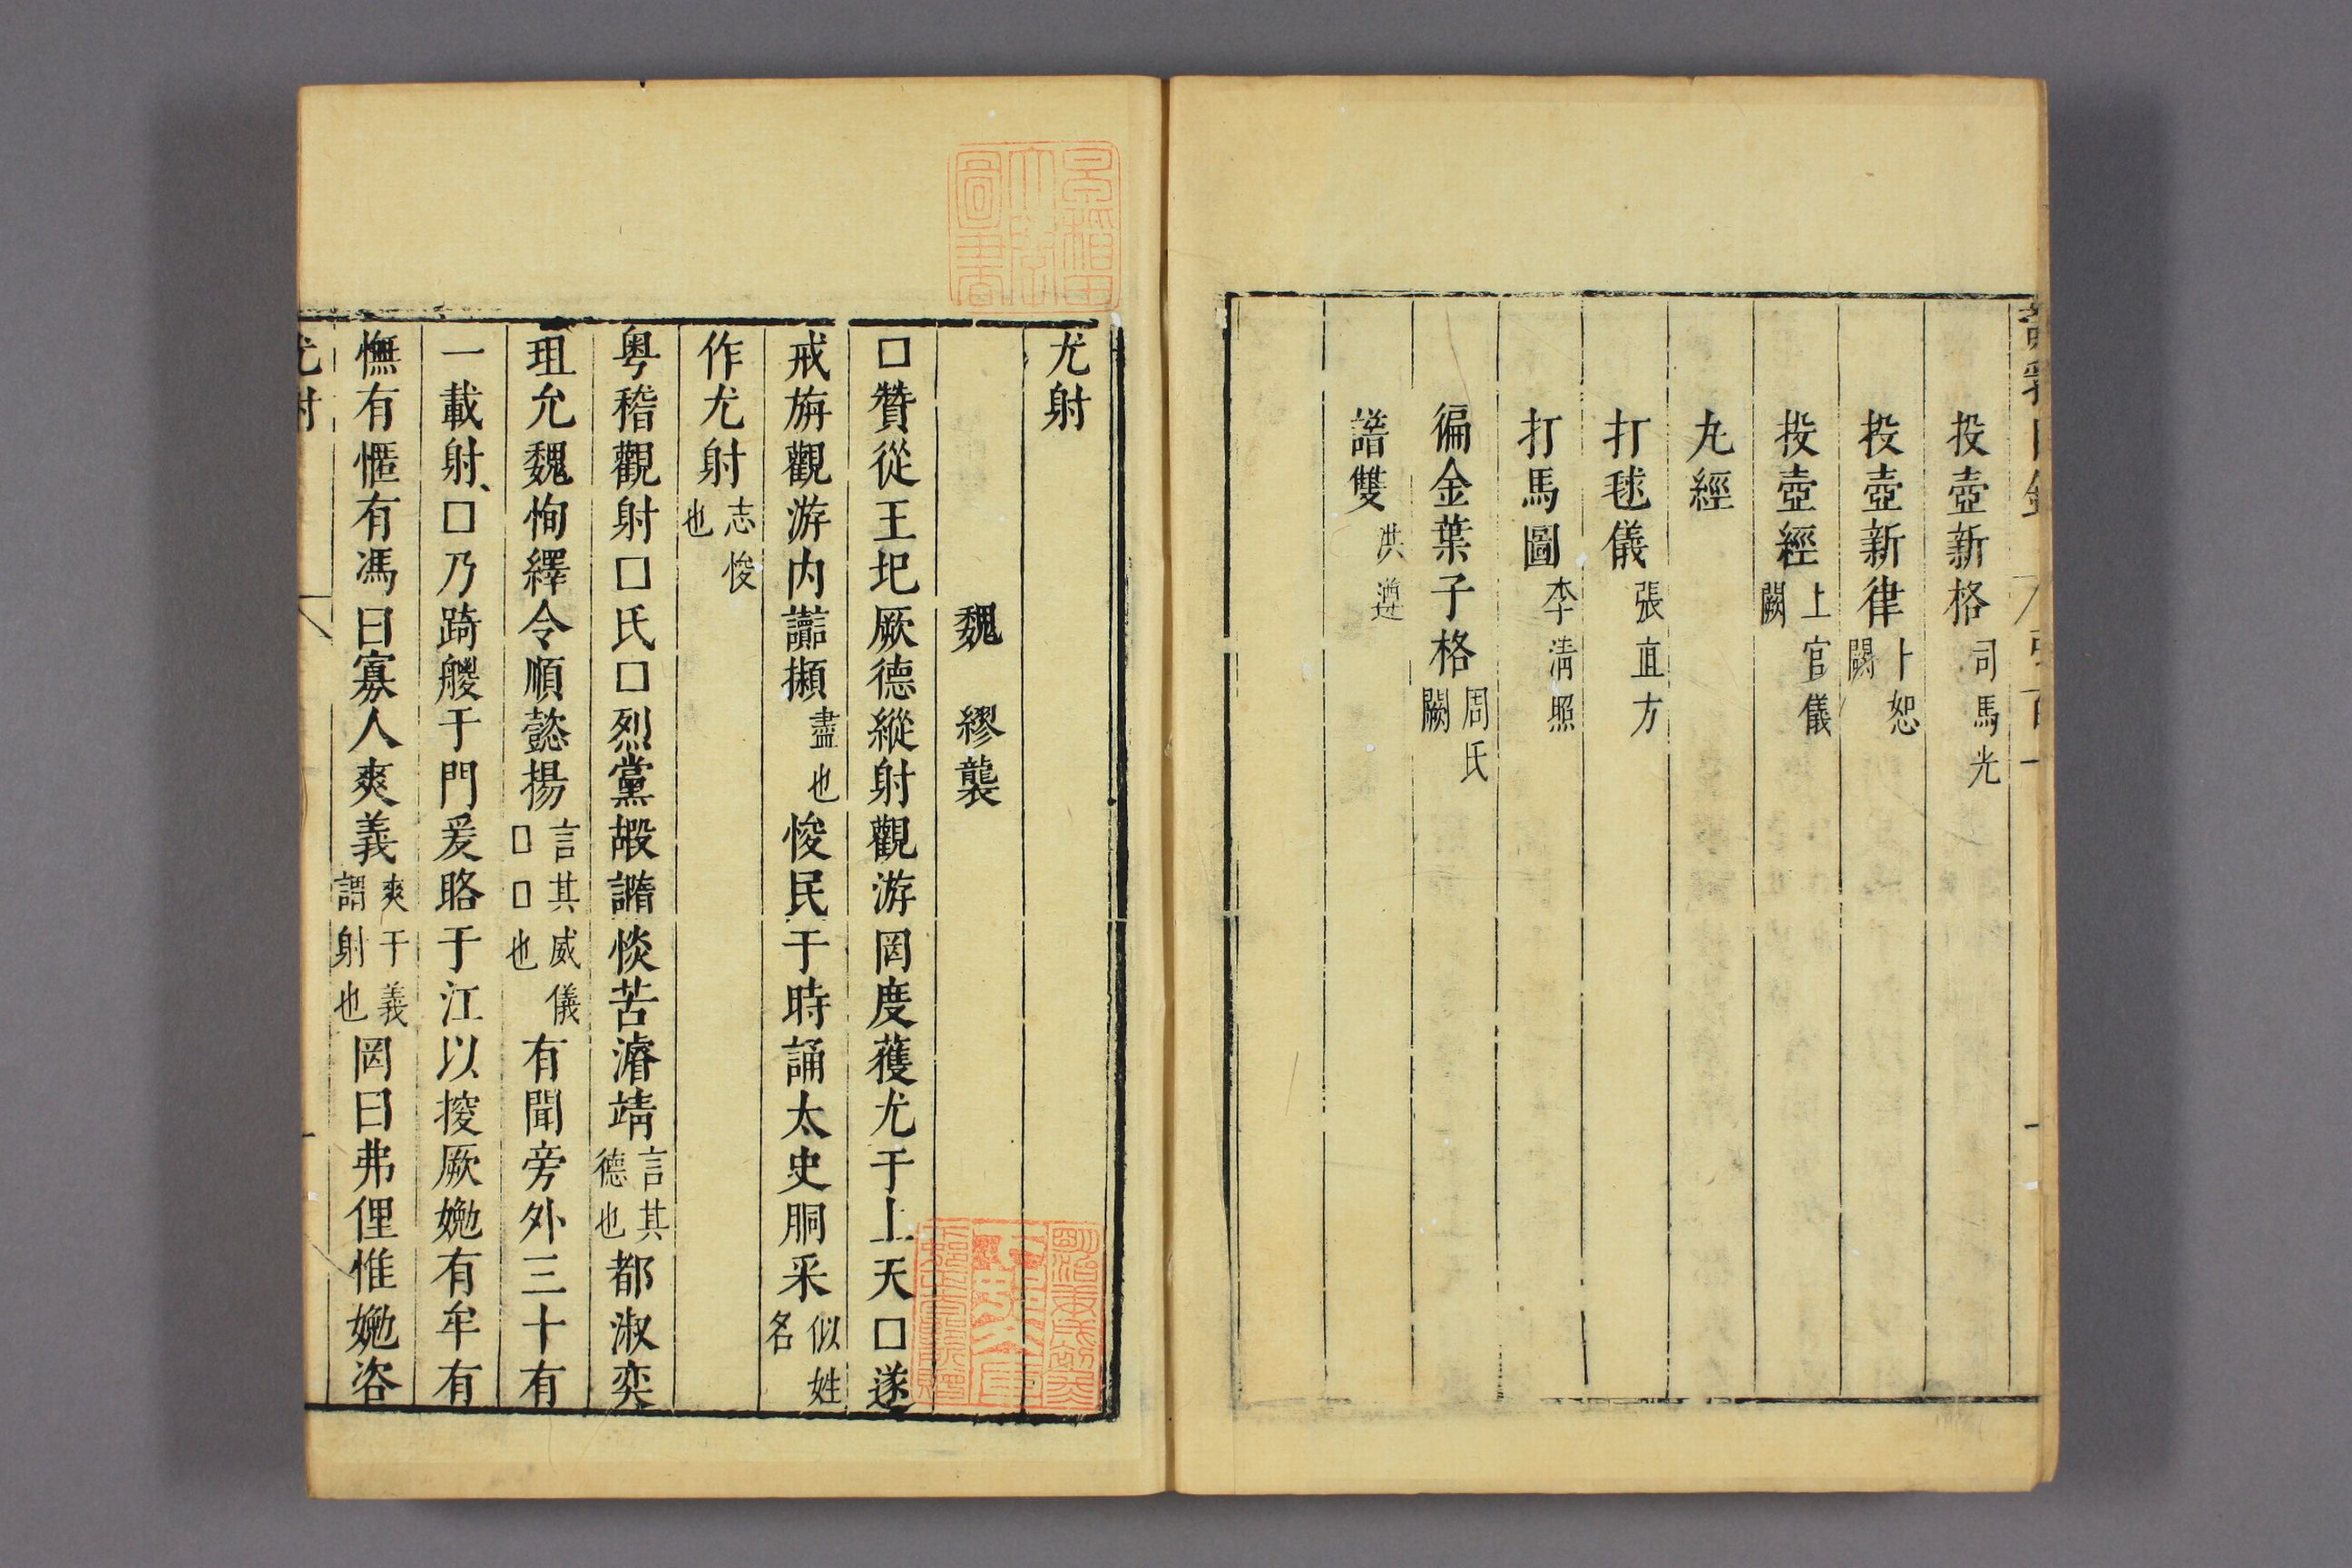 投壺新格司馬光
投壺新律卜恕闕
投壺經上官儀闕
九經
打毬儀張直方
打馬圖李清照
徧金葉子格周氏闕
譜雙洪遵
尤射
魏 繆襲
□贊從王圯厥德縱射觀游罔度蒦尤于上天□遂
戒旃觀游内讟攋盡也悛民于時誦太史胴采似姓名
作尤射志悛也
粤稽觀射□氏□烈黨嘏諙惔苦濬靖言其德也都淑奕
珇允魏恂繹令順懿揚言其威儀□□也有聞旁外三十有
一載射□乃踦艐于門爰略于江以揬厥嬎有牟有
憮有慪有馮曰寡人爽義爽于義謂射也罔曰弗俚惟嬎咨
尤射
早稻田大學圖書